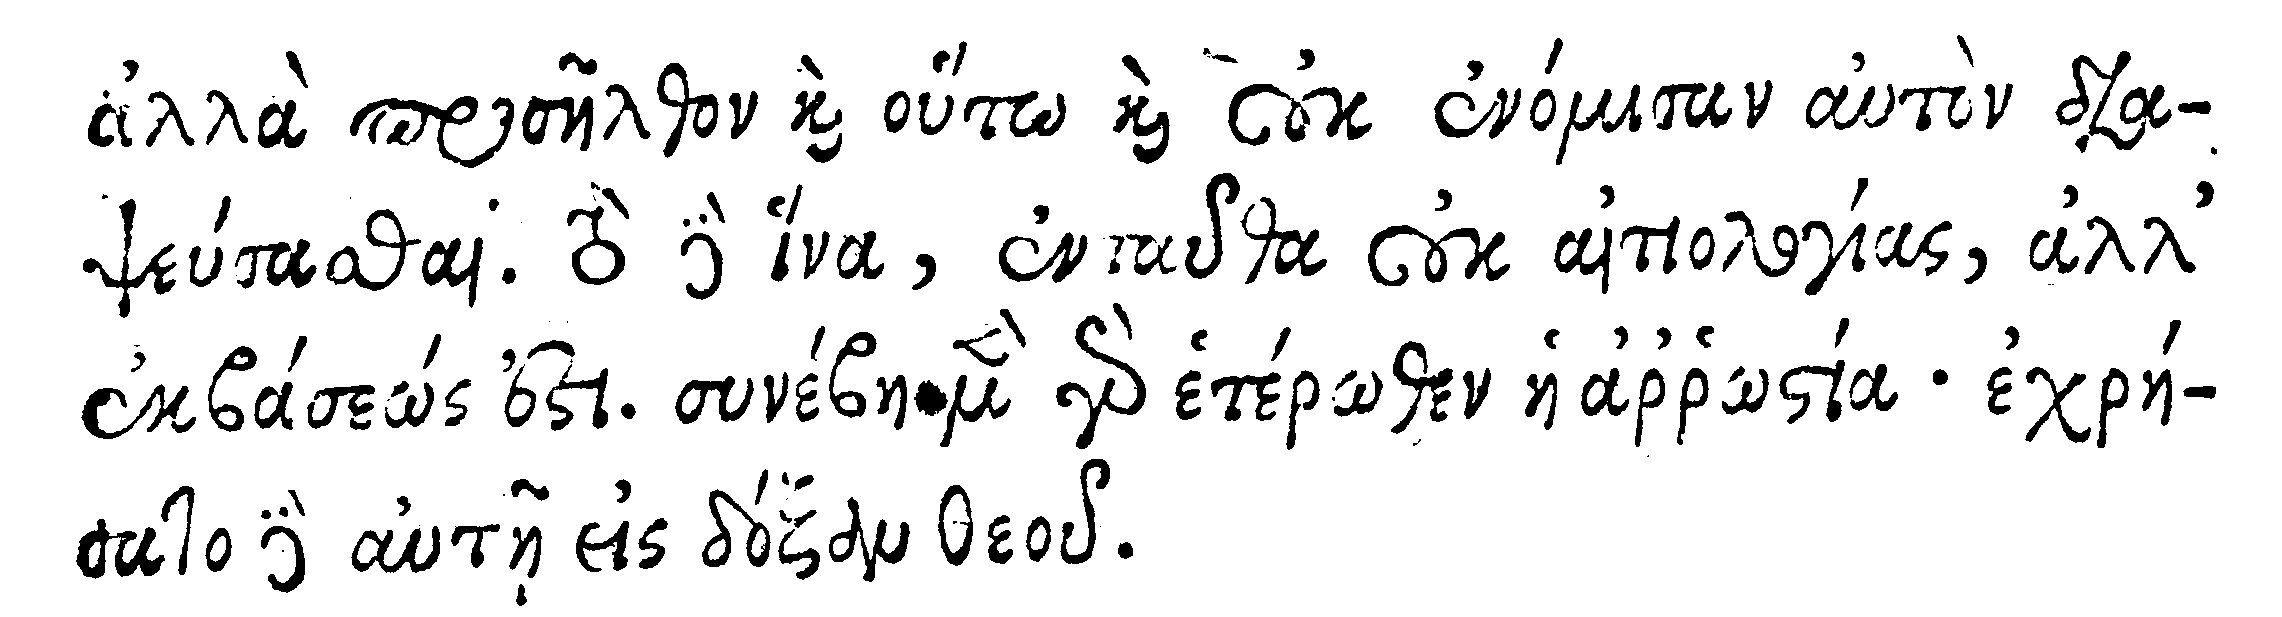 ἀλλὰ προσῆλθον καὶ οὕτω καὶ οὐκ ἐνόμισαν αὐτὸν δια-
ψεύσασθαι. τὸ δὲ ἵνα, ἐνταῦθα οὐκ αἰτιολογίας, ἀλλ’
ἐκβάσεώς ἐστι. συνέβη μὲν γὰρ ἑτέρωθεν ἡ ἀῤῥωστία· ἐχρή-
σατο δὲ αὐτῇ εἰς δόξαν θεοῦ.